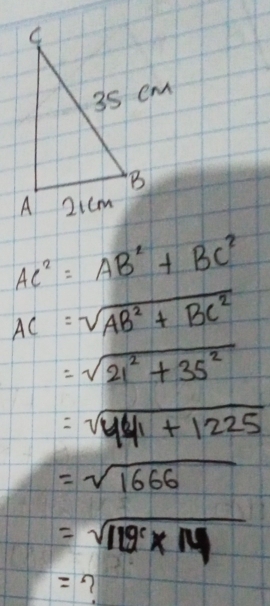 C
35 cm
B
A
21cm
AC² = AB² + BC²
AC = √AB² + BC²
= √21² + 35²
= √441 + 1225
= √1666
= √119 × 14
= ?